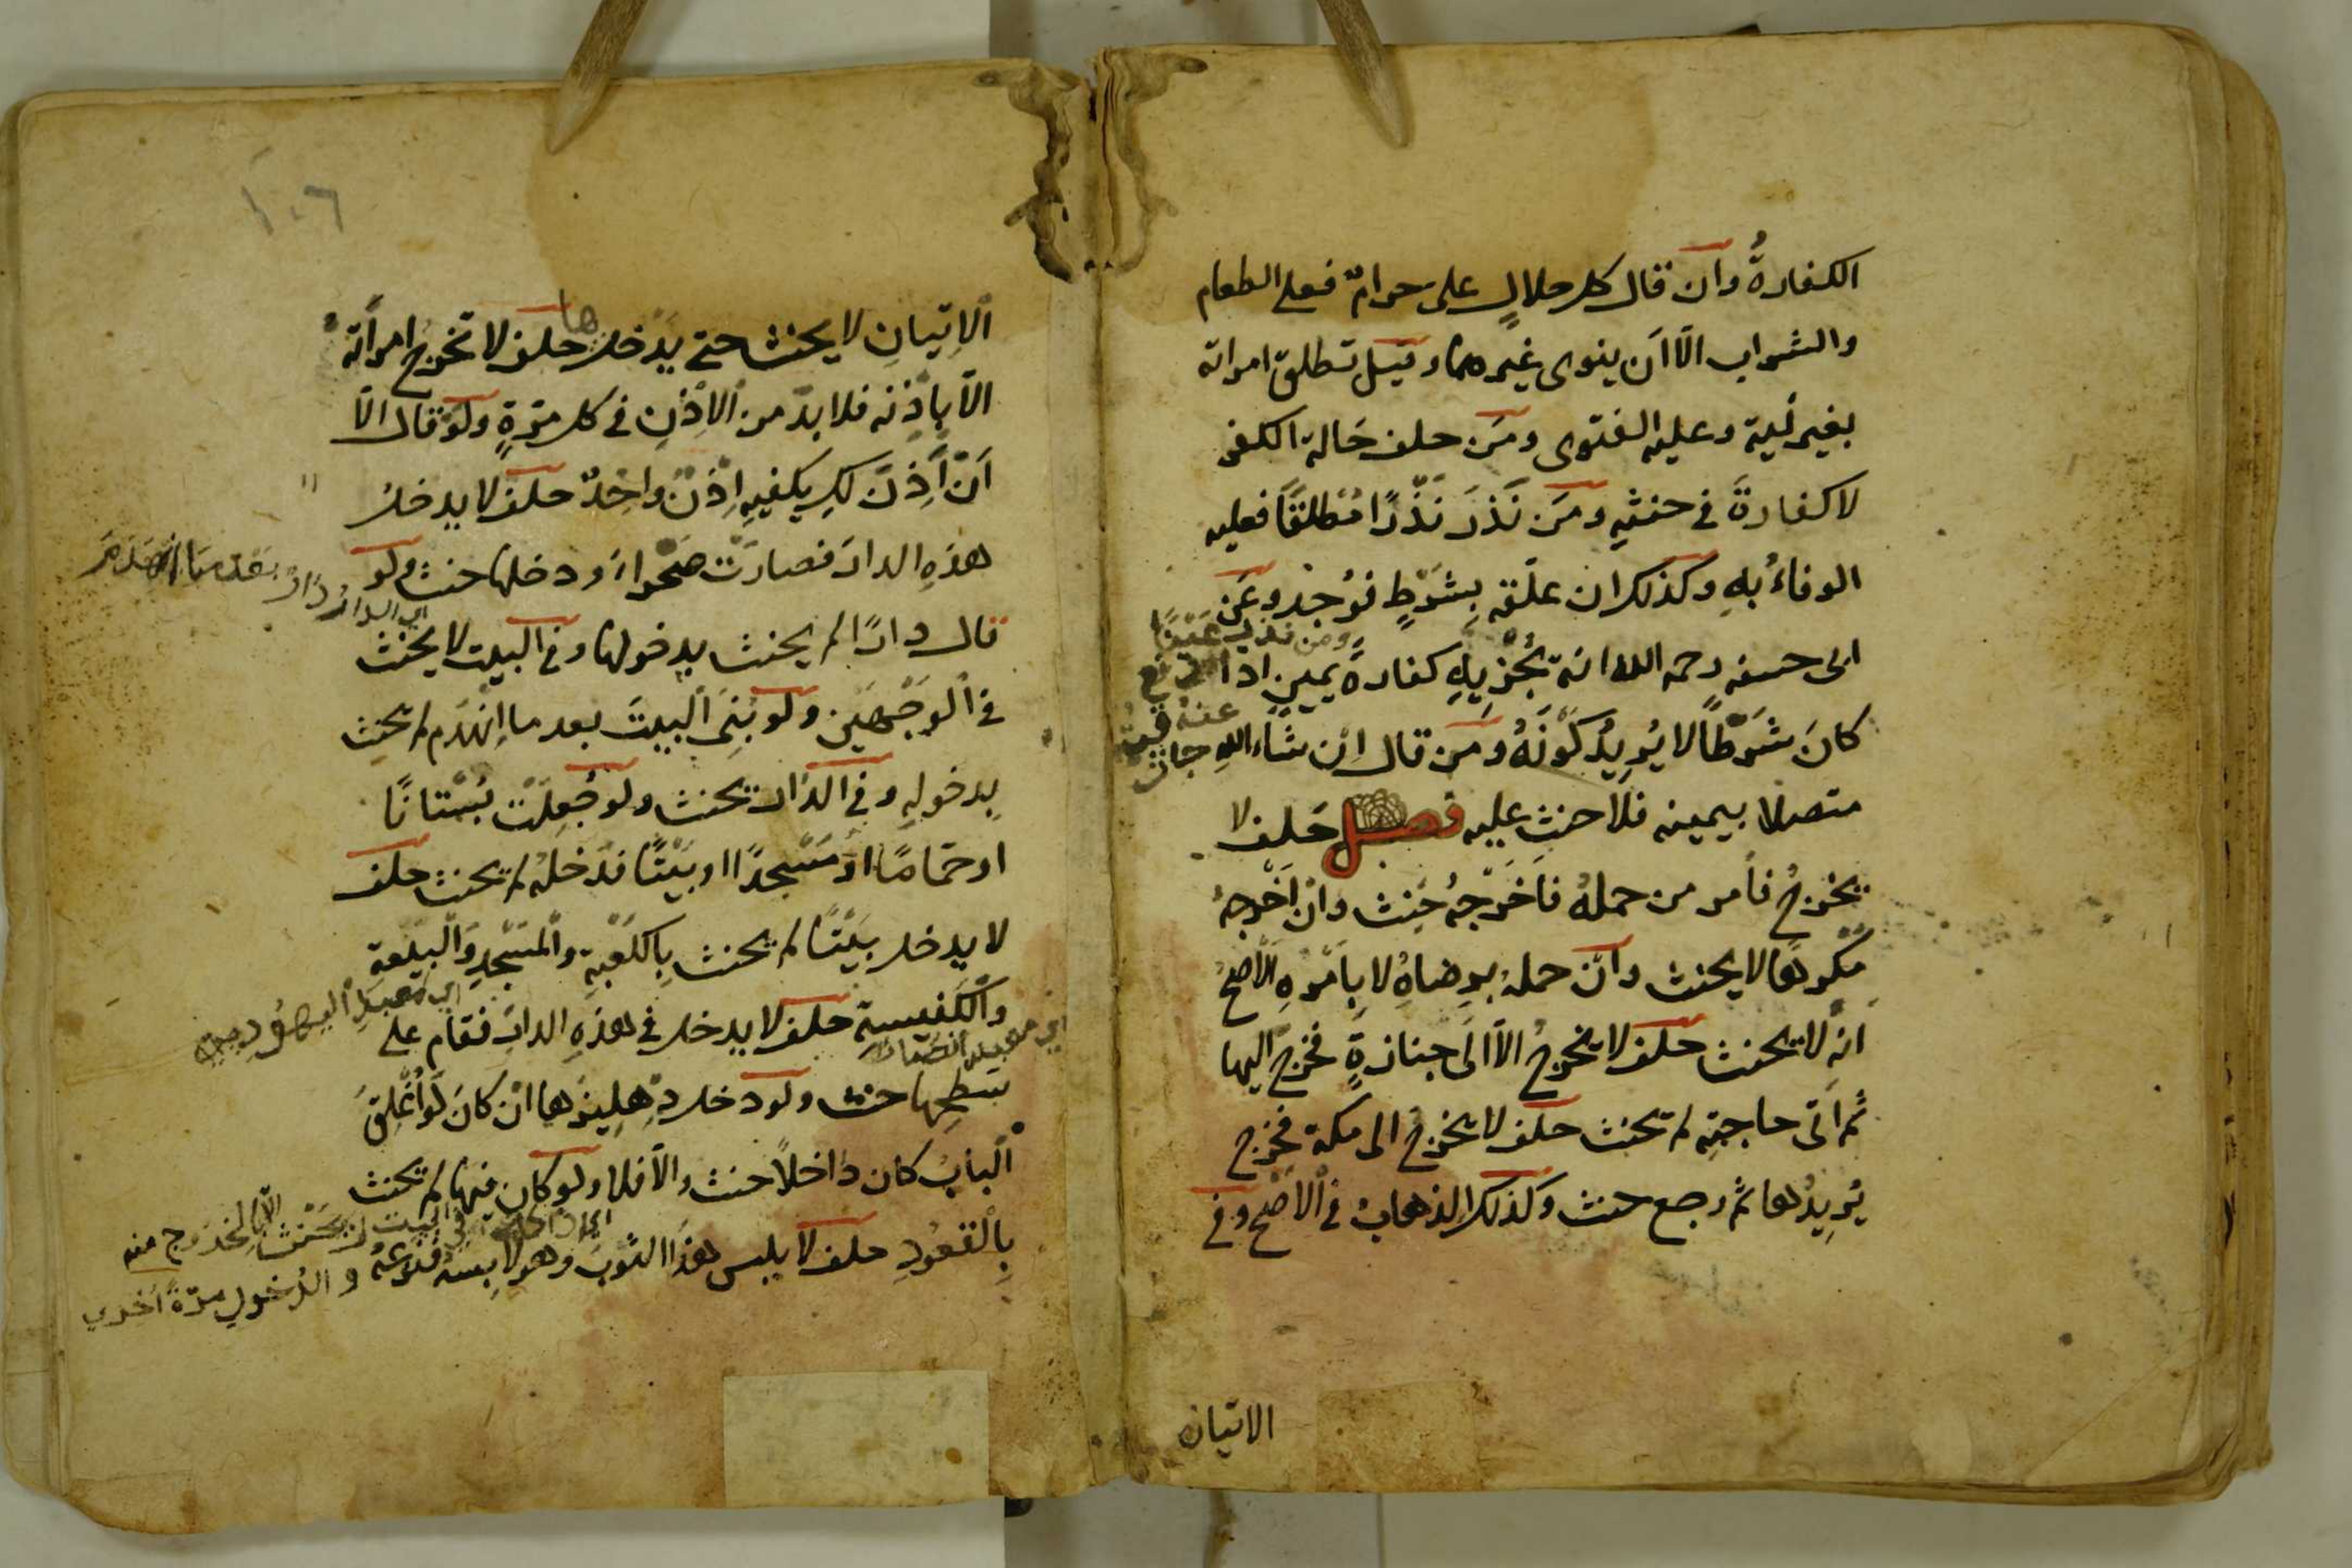 الكفارةُ وان قال كل حلالٍ على حرامٌ فعلى الطعام
والشراب الّا اَن ينوى غيرهما وقيل تطلق امراته
بغير نيّة وعليه الفتوى ومَن حلف حَالة الكفر
لا كفارةَ في حنثهِ ومَن نَذَرَ نَذْرًا مُطلقًا فعليه
الوفاءُ بهِ وكذلك ان علّقه بِشَرْطٍ فوُجِدَ وعَن
ابى حنيفه رحمه الله انه تُجْزِيهِ كفارةُ يمينٍ اذا
كانَ شَرْطًا لا يُريدُ كَوْنَهُ ومَن قال اِن شاء اللهِ
متصلا بيمينه فلا حنث عليه فصل حَلف لا
يخرجُ فأمر من حملهُ فاَخْرَجهُ حَنِث وانْ اَخْرجهُ
مكرهًا لا يحنث وان حملهُ بِرضاهُ لا بِاَمْرهِ الْاَصحّ
انه لا يحنث حلف لا يخرجُ الّا الَى جنازةٍ فخرج اليها
ثم اَتى حاجتِه لم يحنث حلف لا يخرجُ الى مكة فخرج
يُرِيدُها ثم رجع حنث وكَذلك الذهابُ فى الْاَصْحّ وفى
الاتيان
ومن نذر
عنه
١٠٦
الْاِتيانِ لا يحنث حتى يَدْخلها حلف لا تخرجُ امرأَته
الّا بِاِذْنه فلا بدّ من الْاِذْنِ فى كل مرّةٍ ولَوْ قال الّا
اَنْ آَذِنَ لكِ يكفيهِ اِذْنٌ واحِدٌ حلف لا يدخلُ
هذهِ الدارَ فصارَتْ صَحْراءَ ودخلها حنث ولو
قال دارًا لم يحنث بدخولها وفى البيت لا يحنث
فى الْوَجْهَيْنِ ولو بُنِىَ الْبيتَ بعد ما اِنْهدَم لم يحنث
بِدخولهِ وفى الدّار يحنث ولو جُعِلَتْ بُسْتانًا
او حمّامًا اوْ مَسْجدًا او بَيْتًا فدَخلهُ لم يحنث حلف
لا يدخل بيْتًا لم يحنث بِالكَعْبةِ والْمَسْجدِ وَالْبيْعة
والْكَنيسة حلف لا يدخل فى هذهِ الدارِ فقام على
سَطحِها حنث ولو دخل دِهلِيزَها انْ كانَ لَوْ اُغْلِقَ
الْبابُ كان داخلاً حنث والّا فلا ولو كان فيها لم يحنث
بِالْقعُودِ حلف لا يلبس هذا الثّوبَ وهو لابِسهُ فنزعهُ
اي الدار
اي معبد اليهود
اي معبد النصارى
في البيت لا يَحْنث الّا بالخروج منه
والدُخول مرّةً اُخري